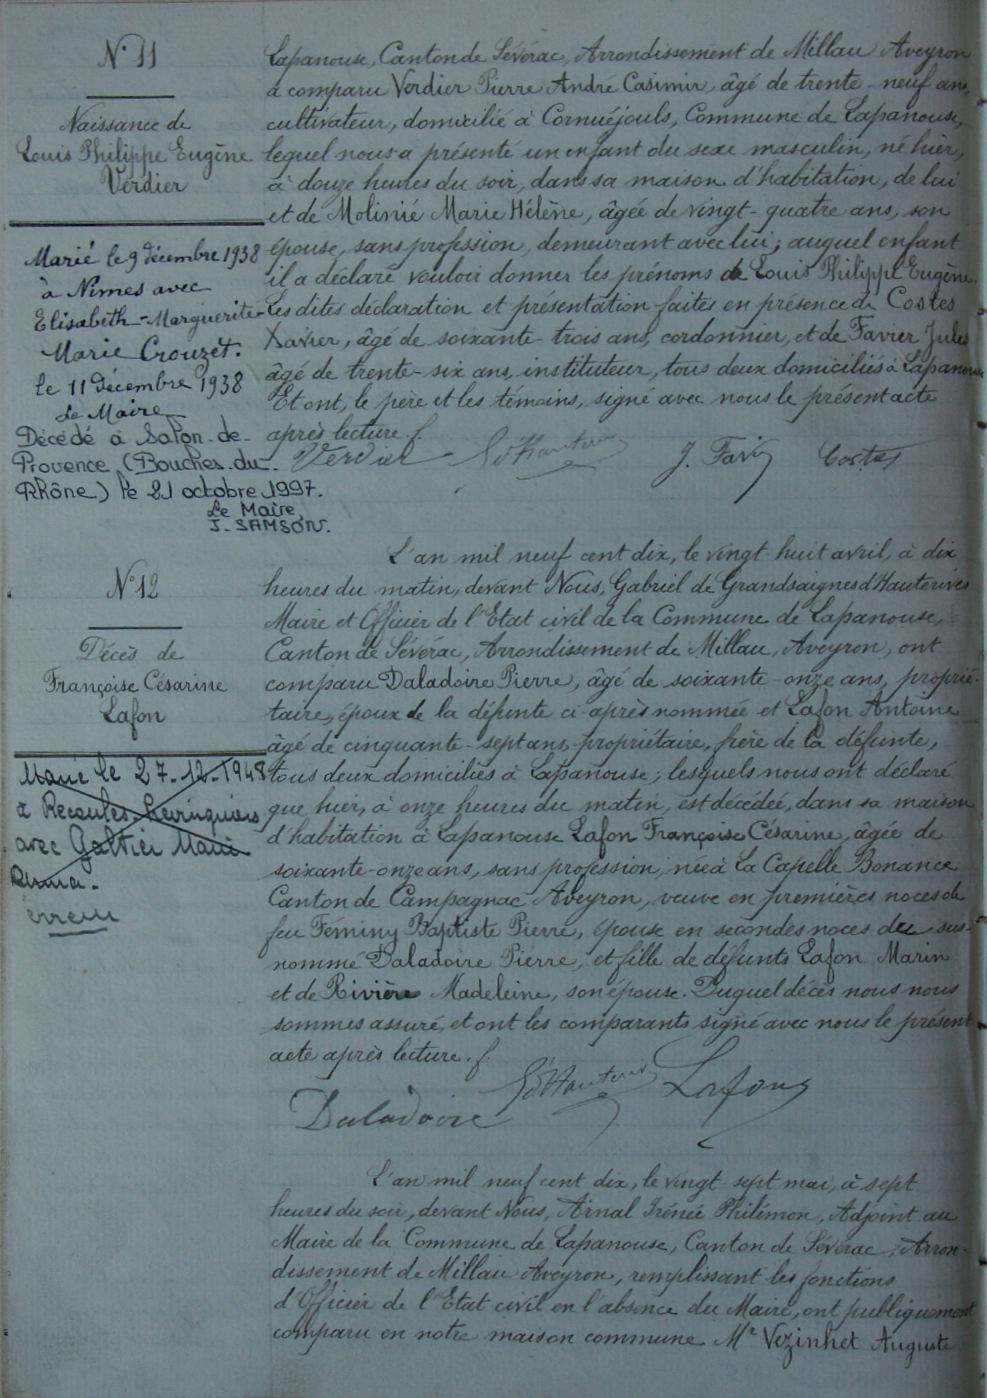 N° 11
Naissance de
Louis Philippe Eugène
Verdier
Marié le 9 décembre 1938
à Nimes avec
Elisabeth-Marguerite-
Marie Crouzet.
le 11 décembre 1938
Le Maire
Décédé à Salon-de-
Provence (Bouches-du-
Rhône) le 21 octobre 1997.
Le Maire,
J. SAMSON.
Lapanouse, Canton de Sévérac, Arrondissement de Millau Aveyron
a comparu Verdier Pierre André Casimir, âgé de trente-neuf ans,
cultivateur, domicilié à Cornuéjouls, Commune de Lapanouse,
lequel nous a présenté un enfant du sexe masculin, né hier,
à douze heures du soir, dans sa maison d'habitation, de lui
et de Molinié Marie Hélène, âgée de vingt-quatre ans, son
épouse, sans profession, demeurant avec lui; auquel enfant
il a déclaré vouloir donner les prénoms de Louis Philippe Eugène.
Les dites déclaration et présentation faites en présence de Costes
Xavier, âgé de soixante-trois ans, cordonnier, et de Favier Jules
âgé de trente-six ans, instituteur, tous deux domiciliés à Lapanouse
Et ont, le père et les témoins, signé avec nous le présent acte
après lecture.
Verdier G d'Hauterives J. Favier Costes
N° 12
Décès de
Françoise Césarine
Lafon
Marié le 27-12-1948
à Recoules-Prévinquières
avec Galtier Marie
erreur
L'an mil neuf cent dix, le vingt huit avril, à dix
heures du matin, devant Nous, Gabriel de Grandsaignes d'Hauterives
Maire et Officier de l'Etat civil de la Commune de Lapanouse,
Canton de Sévérac, Arrondissement de Millau, Aveyron, ont
comparu Daladoire Pierre, âgé de soixante-onze ans, proprié-
taire, époux de la défunte ci-après nommée et Lafon Antoine
âgé de cinquante-sept ans, propriétaire, frère de la défunte,
tous deux domiciliés à Lapanouse; lesquels nous ont déclaré
que hier, à onze heures du matin, est décédée, dans sa maison
d'habitation à Lapanouse Lafon Françoise Césarine, âgée de
soixante-onze ans, sans profession, née à La Capelle Bonance
Canton de Campagnac Aveyron, veuve en premières noces de
feu Féminy Baptiste Pierre, épouse en secondes noces du sus-
nommé Daladoire Pierre, et fille de défunts Lafon Marin
et de Rivière Madeleine, son épouse. Duquel décès nous nous
sommes assuré, et ont les comparants signé avec nous le présent
acte après lecture.
Daladoire G d'Hauterives Lafon
L'an mil neuf cent dix, le vingt-sept mai, à sept
heures du soir, devant Nous, Arnal Irénée Philémon, Adjoint au
Maire de la Commune de Lapanouse, Canton de Sévérac, Arron-
dissement de Millau Aveyron, remplissant les fonctions
d'Officier de l'Etat civil en l'absence du Maire, ont publiquement
comparu en notre maison commune Mr Vezinhet Auguste